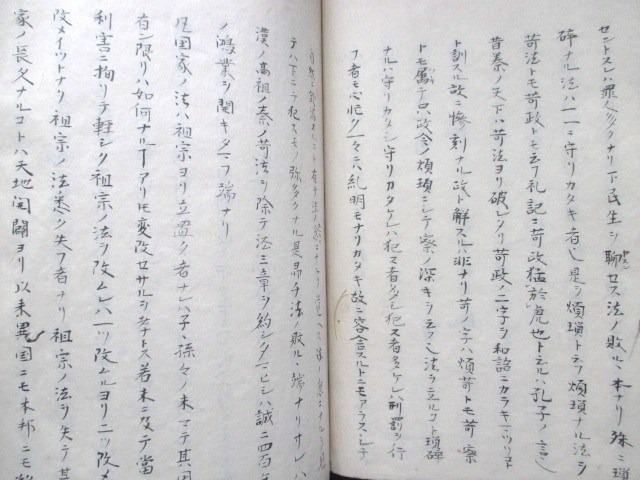 セントスレハ罪人多クナリ下民生ヲ聊セス法ノ敗ル本ナリ殊ニ瑣
碎ナル法ハ一々ニ守リカタキ者也是ヲ煩瑣ト云フ煩瑣ナル法ヲ
苛法トモ苛政トモ云フ礼記ニ苛政猛於虎也ト云ルハ孔子ノ言也
昔秦ノ天下ハ苛法ヨリ破レタリ苛政ノ二字ヲ和語ニカラキマツリコト
ト訓スル故ニ惨刻ナル政ト解スルハ非ナリ苛ノ字ハ煩苛トモ苛察
トモ属テ只政令ノ煩瑣ニシテ察ノ深キヲ云フ也法ヲ立ルコト瑣碎
ナルハ守リカタシ守リカタケレハ犯ス者多シ犯ス者多ケレハ刑罰ヲ行
フ者モ心怃ク一々ニハ糺明モナリカタキ故ニ容言スルトニモアラスシテ
テハ下ニテ犯スモノ弥多クナル是昂チ法ノ敗ル端ナリサレハ
漢ノ高祖ノ秦ノ苛法ヲ除テ法三章ヲ約シタマヒシハ誠ニ四百年
ノ鴻業ヲ開キタマフ端ナリ
凡国家ノ法ハ祖宗ヨリ立置ク者ナレハ子々孫々ノ末マテ其国
有ン限リハ如何ナルコトアリトモ変改セサルヲ善トス若末ニ及テ当
利害ニ拘リテ軽シク祖宗ノ法ヲ改ムレハ一ツ改ムルヨリ二ツ改メ
改メイツトナリ祖宗ノ法悉ク失フ者ナリ祖宗ノ法ヲ失テ其
家ノ長久ナルコトハ天地開闢ヨリ以来異国ニモ本邦ニモ